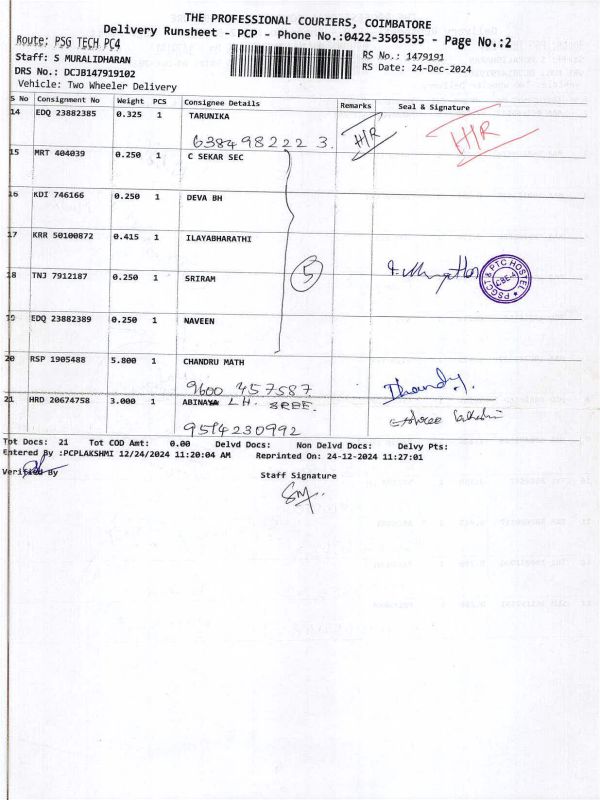 THE PROFESSIONAL COURIERS, COIMBATORE
Delivery Runsheet - PCP - Phone No.:0422-3505555 - Page No.:2
Route: PSG TECH PC4
RS No.: 1479191
Staff: S MURALIDHARAN
RS Date: 24-Dec-2024
DRS No.: DCJB147919102
Vehicle: Two Wheeler Delivery
S No Consignment No Weight PCS Consignee Details Remarks Seal & Signature
14 EDQ 23882385 0.325 1 TARUNIKA
6384982223. H/R H/R
15 MRT 404039 0.250 1 C SEKAR SEC
16 KDI 746166 0.250 1 DEVA BH
17 KRR 50100872 0.415 1 ILAYABHARATHI
5
PSGCT & PTC HOSTEL CBE-4
18 TNJ 7912187 0.250 1 SRIRAM
19 EDQ 23882389 0.250 1 NAVEEN
20 RSP 1905488 5.800 1 CHANDRU MATH
9600 457587
21 HRD 20674758 3.000 1 ABINAYA L H. SREE.
9514230992
Tot Docs: 21 Tot COD Amt: 0.00 Delvd Docs: Non Delvd Docs: Delvy Pts:
Entered By :PCPLAKSHMI 12/24/2024 11:20:04 AM Reprinted On: 24-12-2024 11:27:01
Verified By
Staff Signature